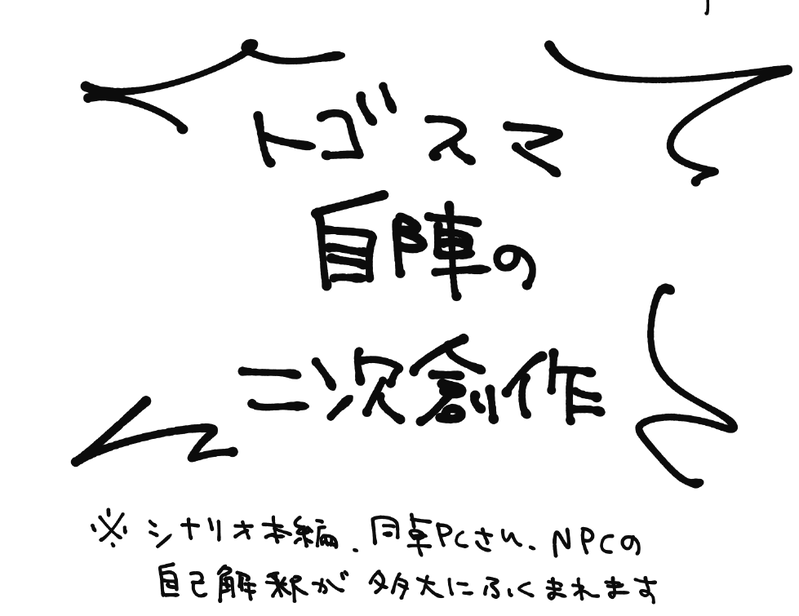 トゴスマ
自陣の
二次創作
※シナリオ本編、同卓PCさん、NPCの
自己解釈が多大にふくまれます